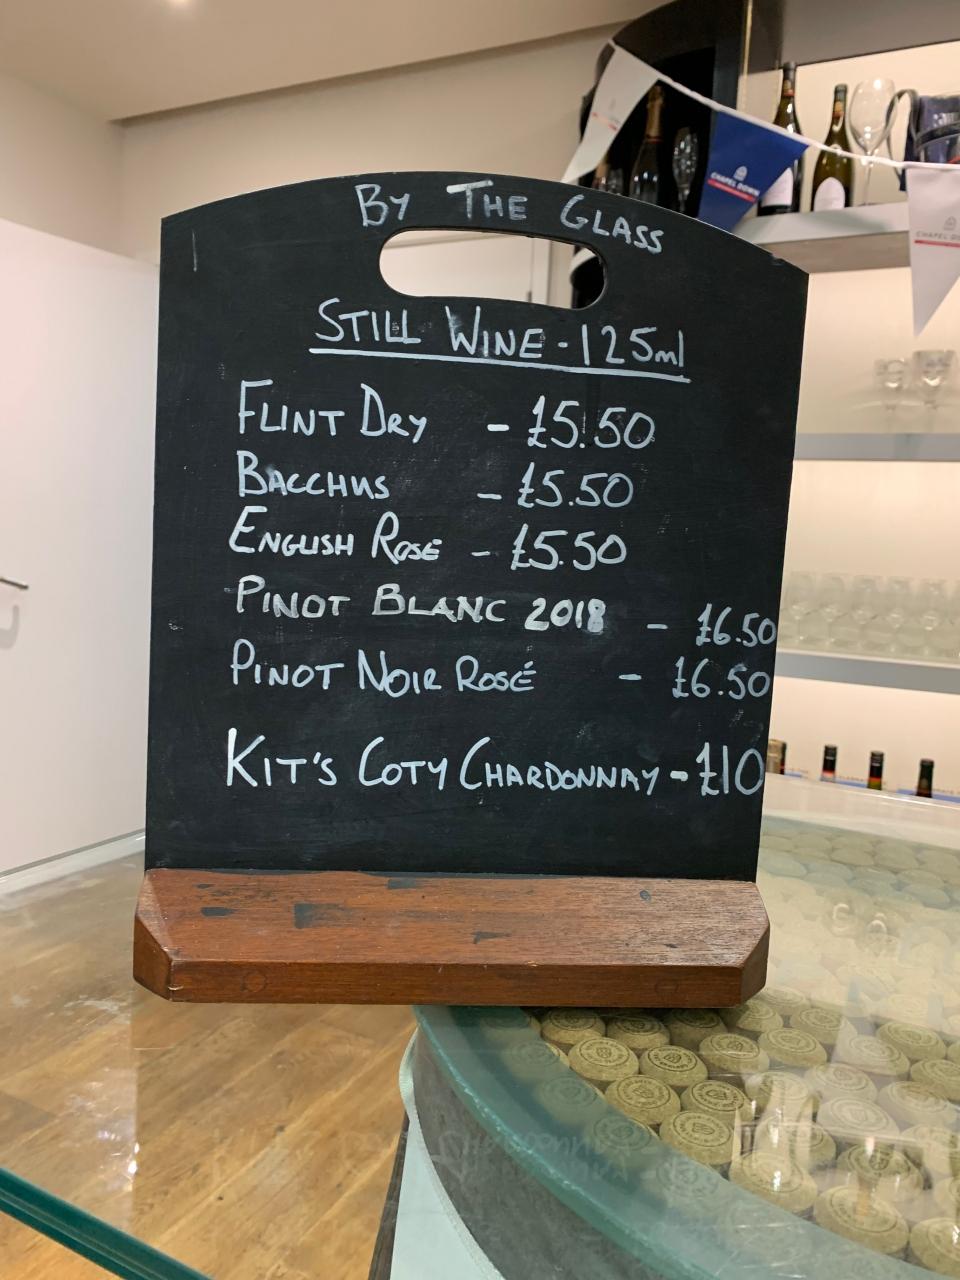 By The Glass
Still Wine - 125ml
Flint Dry - £5.50
Bacchus - £5.50
English Rosé - £5.50
Pinot Blanc 2018 - £6.50
Pinot Noir Rosé - £6.50
Kit's Coty Chardonnay - £10
CHAPEL DOWN
CHAPEL DOWN